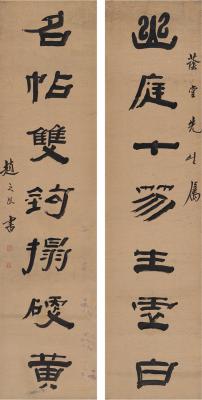 幽庭十笏生虛白
蔭堂先生屬
名帖雙鉤搨硬黃
趙之琛書